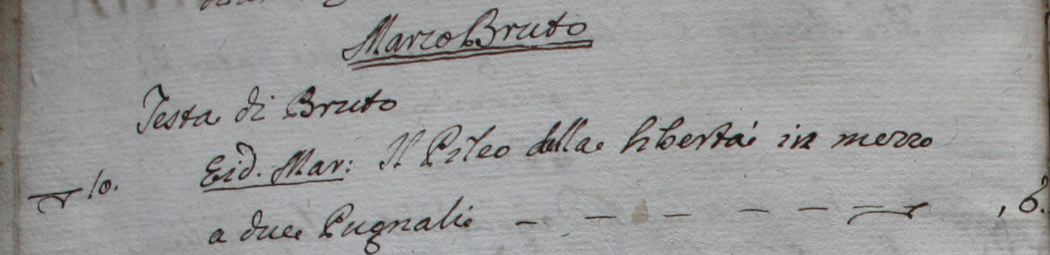 Marco Bruto
Testa di Bruto
10. Eid. Mar: Il Pileo della libertà in mezzo
a due Pugnali - - - - - - , 6.